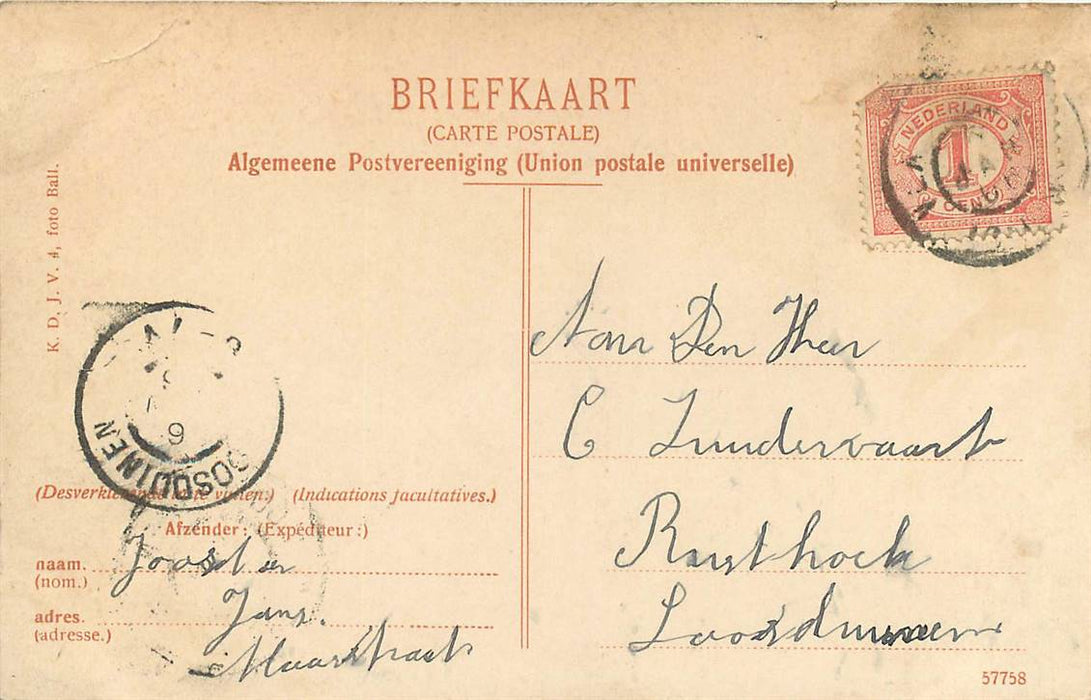 BRIEFKAART
(CARTE POSTALE)
Algemeene Postvereeniging (Union postale universelle)
NEDERLAND
1
CENT
K. D. J. V. 4, foto Ball.
Aan Den Heer
C Zundervaart
Rusthoek
Loosduinen
LOOSDUINEN
9
(Indications facultatives.)
Afzender: (Expéditeur:)
naam. Joost en
(nom.)
adres. Jans.
(adresse.)
57758